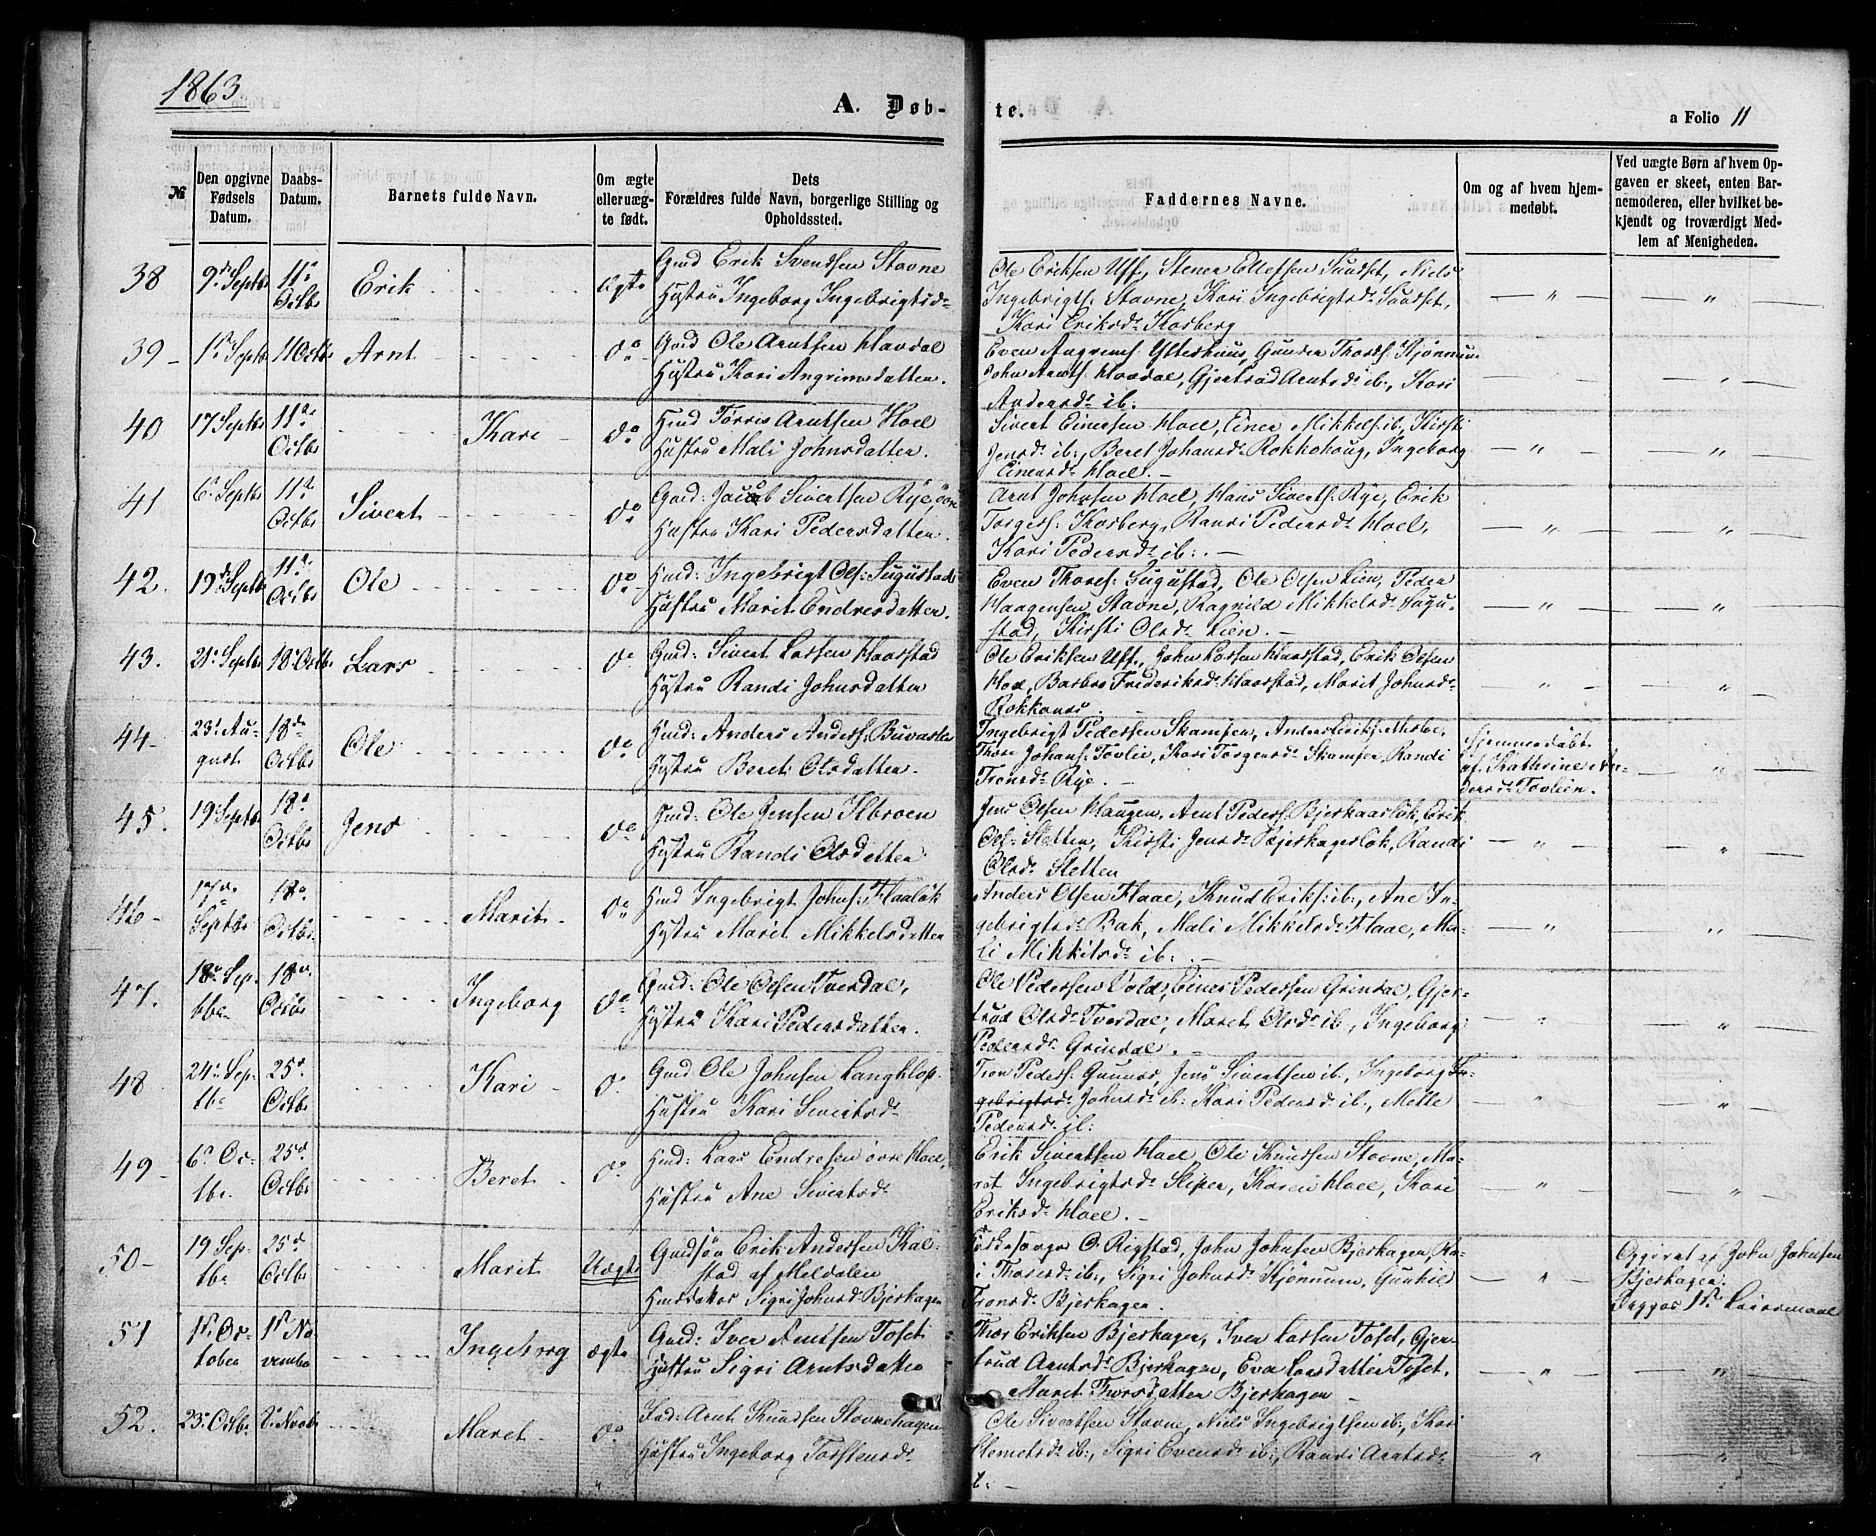 1863
A. Døb-
te.
a Folio 11
№
Den opgivne Fødsels Datum.
Daabs-Datum.
Barnets fulde Navn.
Om ægte eller uægte født.
Dets Forældres fulde Navn, borgerlige Stilling og Opholdssted.
Faddernes Navne.
Om og af hvem hjemmedøbt.
Ved uægte Børn af hvem Opgaven er skeet, enten Barnemoderen, eller hvilket bekjendt og troværdigt Medlem af Menigheden.
38 9de Septbr 11te Octbr Erik Ægte
Gmd Erik Svendsen Stavne
Hustru Ingeborg Ingebrigtsd:
Ole Eriksen Uff, Stener Ellefsen Sundset, Niels
Ingebrigts: Stavne, Kari Ingebrigtsd: Sundset,
Kari Eriksd: Kosberg
39 1ste Septbr 11 Octbr Arnt Do
Gmd Ole Arntsen Havdal
Hustru Kari Angrimsdatter.
Even Angrims: Ytterhuus, Gunder Thords: Hjønnum
John Arnts: Havdal, Gjertrud Arntsd: ib:, Kari
Andersd: ib:
40 17 Septbr 11te Octbr Kari Do
Hmd Tørris Arntsen Hoel
Hustru Mali Johnsdatter.
Sivert Einersen Hoel, Einer Mikkels: ib:, Kirsti
Jensd: ib:, Beret Johansd: Rokkohoug, Ingeborg
Einersd: Hoel. —
41 6te Septbr 11te Octbr Sivert Do
Gmd: Jacob Sivertsen Rye, øvre
Hustru Kari Pedersdatter.
Arnt Johnsen Hoel, Hans Siverts: Rye, Erik
Torgers: Kosberg, Randi Pedersd: Hoel,
Kari Pedersd: ib: —
42. 19de Septbr 11te Octbr Ole Do
Hmd: Ingebrigt Ols: Sugustad
Hustru Marit Endresdatter.
Even Thores: Sugustad, Ole Olsen Lien, Peder
Haagensen Stavne, Ragnild Mikkelsd: Sugu-
stad, Kirsti Olsd: Lien. —
43. 21de Septbr 18de Octbr Lars Do
Gmd: Sivert Larsen Haarstad
Hustru Randi Johnsdatter
Ole Eriksen Uff, John Larsen Haarstad, Erik Olsen
Hoel, Barbro Frederiksd: Haarstad, Marit Johnsd:
44 23de August 18de Octbr Ole Do
Hmd: Anders Anders: Buvarslien
Hustru Beret Olsdatter.
Ingebrigt Pedersen Skamfer, Anders Eriks:
Thore Johans: Tovlie, Kari Torgersd: Skamfer, Randi
Tronsd: Rye. —
Hjemmedøbt
af Kathrine An-
dersd: Tovlien.
45. 19de Septbr 18de Octbr Jens Do
Hmd: Ole Jensen Ilbroen
Hustru Randi Olsdatter
Jens Olsen Haugen, Arnt Peders: Bjerkaasløk, Erik
Ols: Sletten, Kirsti Jensd: Bjerkagerløk, Randi
Olsd: Sletten
46 Septbr 18de Octbr Marit Do
Hmd Ingebrigt Johns: Flaaløk
Hustru Marit Mikkelsdatter
Anders Olsen Flaae, Knud Eriks: ib:, Ane In-
gebrigtsd: Bak, Mali Mikkelsd: Flaae, Ma-
li Mikkelsd: ib: —
47. 18de Septbr 18de Octbr Ingeborg Do
Gmd: Ole Olsen Tverdal,
Hustru Kari Pedersdatter.
Ole Pedersen Vold, Einer Pedersen Grindal, Gjer-
trud Olsd: Tverdal, Maret Olsd: ib:, Ingeborg
Pedersd: Grindal. —
48 24de Septbr 25de Octbr Kari Do
Gmd: Ole Johnsen Langklop.
Hustru Kari Sivertsd:
Tron Peders: Gunnes, Jens Sivertsen ib:, Ingeborg In-
gebrigtsd: Johnsd: ib: Kari Pedersd: ib:, Mette
Pedersd: ib:
49 6te Octbr. 25de Octbr Beret Do
Hmd: Lars Endresen øvre Hoel,
Hustru Ane Sivertsd:
Erik Sivertsen Hoel, Ole Knudsen Stavne, Ma-
rit Ingebrigtsd: Sliper, Karen Hoel, Kari
Eriksd: Hoel. —
50 19 Septbr 25de Octbr Marit Uægte
Gmdsøn Erik Andersen Kal-
stad af Meldalen
Hmdsdatter Sigri Johnsd: Bjerkagen
Kirkesanger O. Rigstad, John Johnsen Bjerkagen, Ka-
ri Thoresd: ib:, Sigri Johnsd: Hjønnum, Gunhil
Tronsd: Bjerkagen.
Opgivet af John Johnsen
Bjerkagen.
Begges 1ste Leiermaal
51 1ste October 1ste November Ingeborg ægte
Gmd: Iver Arntsen Toset
Hustru Sigri Arntsdatter
Thor Eriksen Bjerkagen, Iver Larsen Toset, Gjer-
trud Arntsd: Bjerkagen, Eva Larsdatter Toset,
Maret Thorsdatter Bjerkagen —
52. 23de Octbr 8de Novbr Maret Do
Ind: Arnt Knudsen Stavnehagen
Hustru Ingeborg Torstensd:
Ole Sivertsen Stavne, Niels Ingebrigtsen ib:, Kari
ib:, Sigri Evensd: ib:, Randi Arntsd:
ib: —